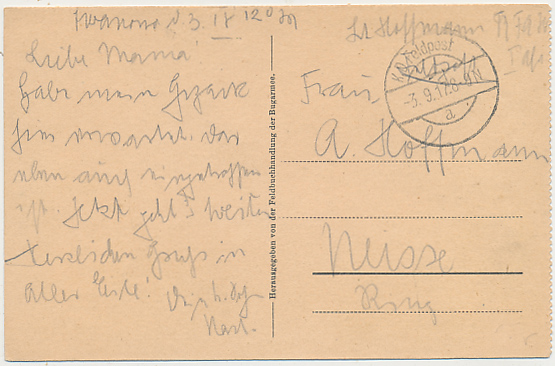 Iwanowo d. 3. IX 12 0 M
Liebe Mama!
Habe mein Gepäck
hier erwartet. das
eben auch eingetroffen
ist. Jetzt geht's weiter
Herzlichen Gruß in
aller Eile!
Kurt.
Herausgegeben von der Feldbuchhandlung der Bugarmee.
Lt Hoffmann
K.D. Feldpost
-3. 9. 17. 8-9 N
a
Frau
A. Hoffmann
Neisse
Ring